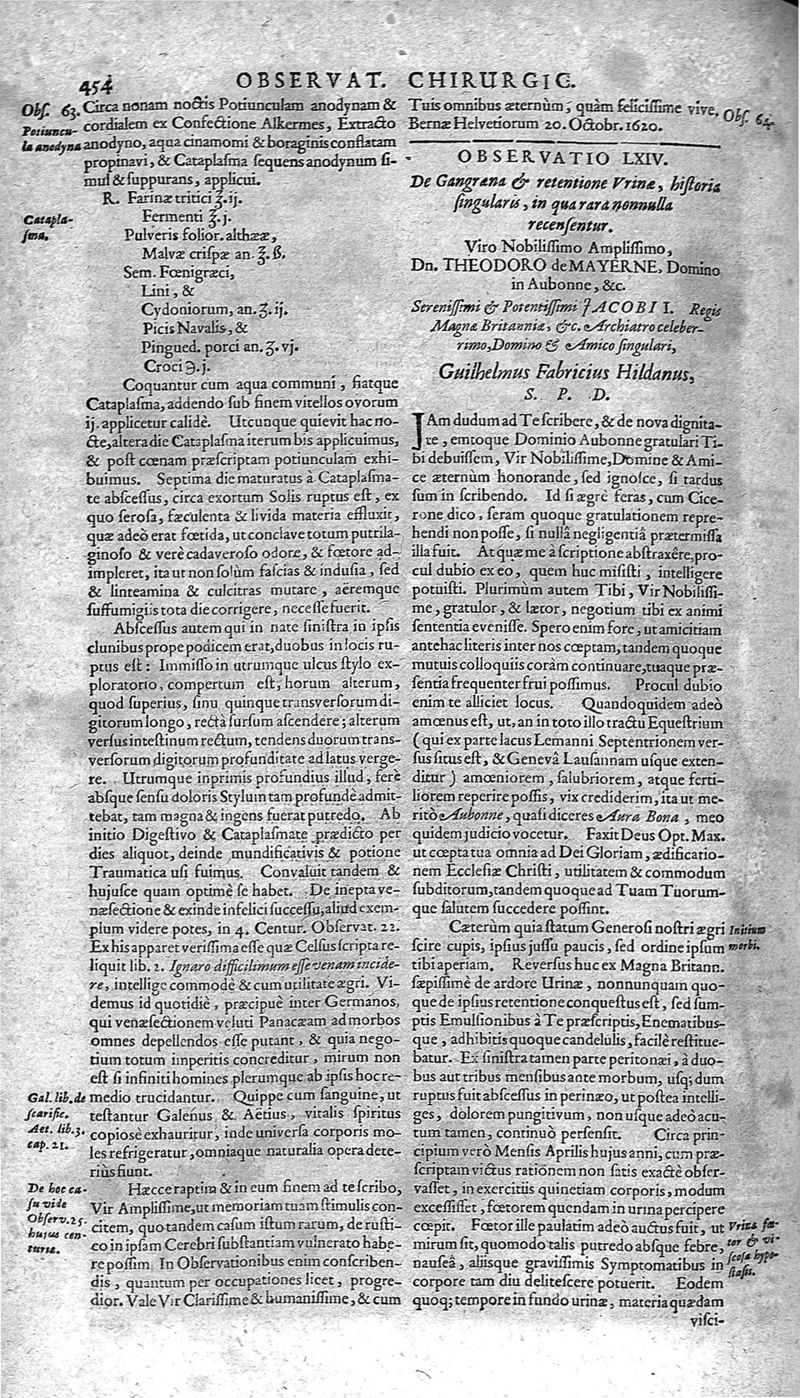 454 OBSERVAT. CHIRURGIC.
Obſ. 63.
Potiuncu-
la anodyna
Circa nonam noctis Potiunculam anodynam &
cordialem ex Confectione Alkermes, Extracto
anodyno, aqua cinamomi & boraginis conflatam
propinavi, & Cataplaſma ſequens anodynum ſi-
mul & ſuppurans, applicui.
Catapla-
ſma.
R. Farinæ tritici ℥. ij.
Fermenti ℥. j.
Pulveris folior. althææ,
Malvæ criſpæ an. ℥. ß.
Sem. Fœnigræci,
Lini, &
Cydoniorum, an. ℥. ij.
Picis Navalis, &
Pingued. porci an. ℥. vj.
Croci ℈. j.
Coquantur cum aqua communi, fiatque
Cataplaſma, addendo ſub finem vitellos ovorum
ij. applicetur calidè. Utcunque quievit hac no-
cte, altera die Cataplaſma iterum bis applicuimus,
& poſt cœnam præſcriptam potiunculam exhi-
buimus. Septima die maturatus à Cataplaſma-
te abſceſſus, circa exortum Solis ruptus eſt, ex
quo ſeroſa, fæculenta & livida materia effluxit,
quæ adeò erat fœtida, ut conclave totum putrila-
ginoſo & verè cadaveroſo odore, & fœtore ad-
impleret, ita ut non ſolùm faſcias & induſia, ſed
& linteamina & culcitras mutare, aëremque
ſuffumigiis tota die corrigere, neceſſe fuerit.
Abſceſſus autem qui in nate ſiniſtra in ipſis
clunibus prope podicem erat, duobus in locis ru-
ptus eſt: Immiſſo in utrumque ulcus ſtylo ex-
ploratorio, compertum eſt, horum alterum,
quod ſuperius, ſinu quinque tranſverſorum di-
gitorum longo, rectà ſurſum aſcendere; alterum
verſus inteſtinum rectum, tendens duorum tranſ-
verſorum digitorum profunditate ad latus verge-
re. Utrumque inprimis profundius illud, ferè
abſque ſenſu doloris Stylum tam profundè admit-
tebat, tam magna & ingens fuerat putredo. Ab
initio Digeſtivo & Cataplaſmate prædicto per
dies aliquot, deinde mundificativis & potione
Traumatica uſi fuimus. Convaluit tandem &
hujuſce quam optimè ſe habet. De inepta ve-
næſectione & exinde infelici ſucceſſu, aliud exem-
plum videre potes, in 4. Centur. Obſervat. 22.
Ex his apparet veriſſima eſſe quæ Celſus ſcripta re-
liquit lib. 2. Ignaro difficilimum eſſe venam incide-
re, intellige commodè & cum utilitate ægri. Vi-
demus id quotidiè, præcipuè inter Germanos,
qui venæſectionem veluti Panacæam ad morbos
omnes depellendos eſſe putant, & quia nego-
tium totum imperitis concreditur, mirum non
eſt ſi infiniti homines plerumque ab ipſis hoc re-
medio trucidantur. Quippe cum ſanguine, ut
teſtantur Galenus & Aëtius, vitalis ſpiritus
copiosè exhauritur, inde univerſa corporis mo-
les refrigeratur, omniaque naturalia opera dete-
riùs fiunt.
Gal. lib. de
ſcarific.
Aet. lib. 3.
cap. 21.
De hoc ca-
ſu vide
Obſerv. 25.
hujus cen-
turiæ.
Hæcce raptim & in eum finem ad te ſcribo,
Vir Ampliſſime, ut memoriam tuam ſtimulis con-
citem, quo tandem caſum iſtum rarum, de ruſti-
co in ipſam Cerebri ſubſtantiam vulnerato habe-
re poſſim. In Obſervationibus enim conſcriben-
dis, quantum per occupationes licet, progre-
dior. Vale Vir Clariſſime & humaniſſime, & cum
Tuis omnibus æternùm, quàm feliciſſime vive,
Bernæ Helvetiorum 20. Octobr. 1620.
Obſ. 64.
OBSERVATIO LXIV.
De Gangræna & retentione Vrinæ, hiſtoria
ſingularis, in qua rara nonnulla
recenſentur.
Viro Nobiliſſimo Ampliſſimo,
Dn. THEODORO de MAYERNE, Domino
in Aubonne, &c.
Sereniſſimi & Potentiſſimi JACOBI I. Regis
Magnæ Britanniæ, &c. Archiatro celeber-
rimo, Domino & Amico ſingulari,
Guilhelmus Fabricius Hildanus,
S. P. D.
JAm dudum ad Te ſcribere, & de nova dignita-
te, emtoque Dominio Aubonne gratulari Ti-
bi debuiſſem, Vir Nobiliſſime, Domine & Ami-
ce æternùm honorande, ſed ignoſce, ſi tardus
ſum in ſcribendo. Id ſi ægrè feras, cum Cice-
rone dico, ſeram quoque gratulationem repre-
hendi non poſſe, ſi nullâ negligentiâ prætermiſſa
illa fuit. At quæ me à ſcriptione abſtraxêre, pro-
cul dubio ex eo, quem huc miſiſti, intelligere
potuiſti. Plurimùm autem Tibi, Vir Nobiliſſi-
me, gratulor, & lætor, negotium tibi ex animi
ſententia eveniſſe. Spero enim fore, ut amicitiam
antehac literis inter nos cœptam, tandem quoque
mutuis colloquiis coràm continuare, tuaque præ-
ſentia frequenter frui poſſimus. Procul dubio
enim te alliciet locus. Quandoquidem adeò
amœnus eſt, ut, an in toto illo tractu Equeſtrium
(qui ex parte lacus Lemanni Septentrionem ver-
ſus ſitus eſt, & Genevâ Lauſannam uſque exten-
ditur) amœniorem, ſalubriorem, atque ferti-
liorem reperire poſſis, vix crediderim, ita ut me-
ritò Aubonne, quaſi diceres Aura Bona, meo
quidem judicio vocetur. Faxit Deus Opt. Max.
ut cœpta tua omnia ad Dei Gloriam, ædificatio-
nem Eccleſiæ Chriſti, utilitatem & commodum
ſubditorum, tandem quoque ad Tuam Tuorum-
que ſalutem ſuccedere poſſint.
Cæterùm quia ſtatum Generoſi noſtri ægri
ſcire cupis, ipſius juſſu paucis, ſed ordine ipſum
tibi aperiam. Reverſus huc ex Magna Britann.
ſæpiſſimè de ardore Urinæ, nonnunquam quo-
que de ipſius retentione conqueſtus eſt, ſed ſum-
ptis Emulſionibus à Te præſcriptis, Enematibus-
que, adhibitis quoque candelulis, facilè reſtitue-
batur. Ex ſiniſtra tamen parte peritonæi, à duo-
bus aut tribus menſibus ante morbum, uſq; dum
ruptus fuit abſceſſus in perinæo, ut poſtea intelli-
ges, dolorem pungitivum, non uſque adeò acu-
tum tamen, continuò perſenſit. Circa prin-
cipium verò Menſis Aprilis hujus anni, cum præ-
ſcriptam victus rationem non ſatis exactè obſer-
vaſſet, in exercitiis quinetiam corporis, modum
exceſſiſſet, fœtorem quendam in urina percipere
cœpit. Fœtor ille paulatim adeò auctus fuit, ut
mirum ſit, quomodo talis putredo abſque febre,
nauſeâ, aliisque graviſſimis Symptomatibus in
corpore tam diu deliteſcere potuerit. Eodem
quoq; tempore in fundo urinæ, materia quædam
viſci-
Initium
morbi.
Vrinæ fœ-
tor & vi-
ſcoſa hypo-
ſtaſis.